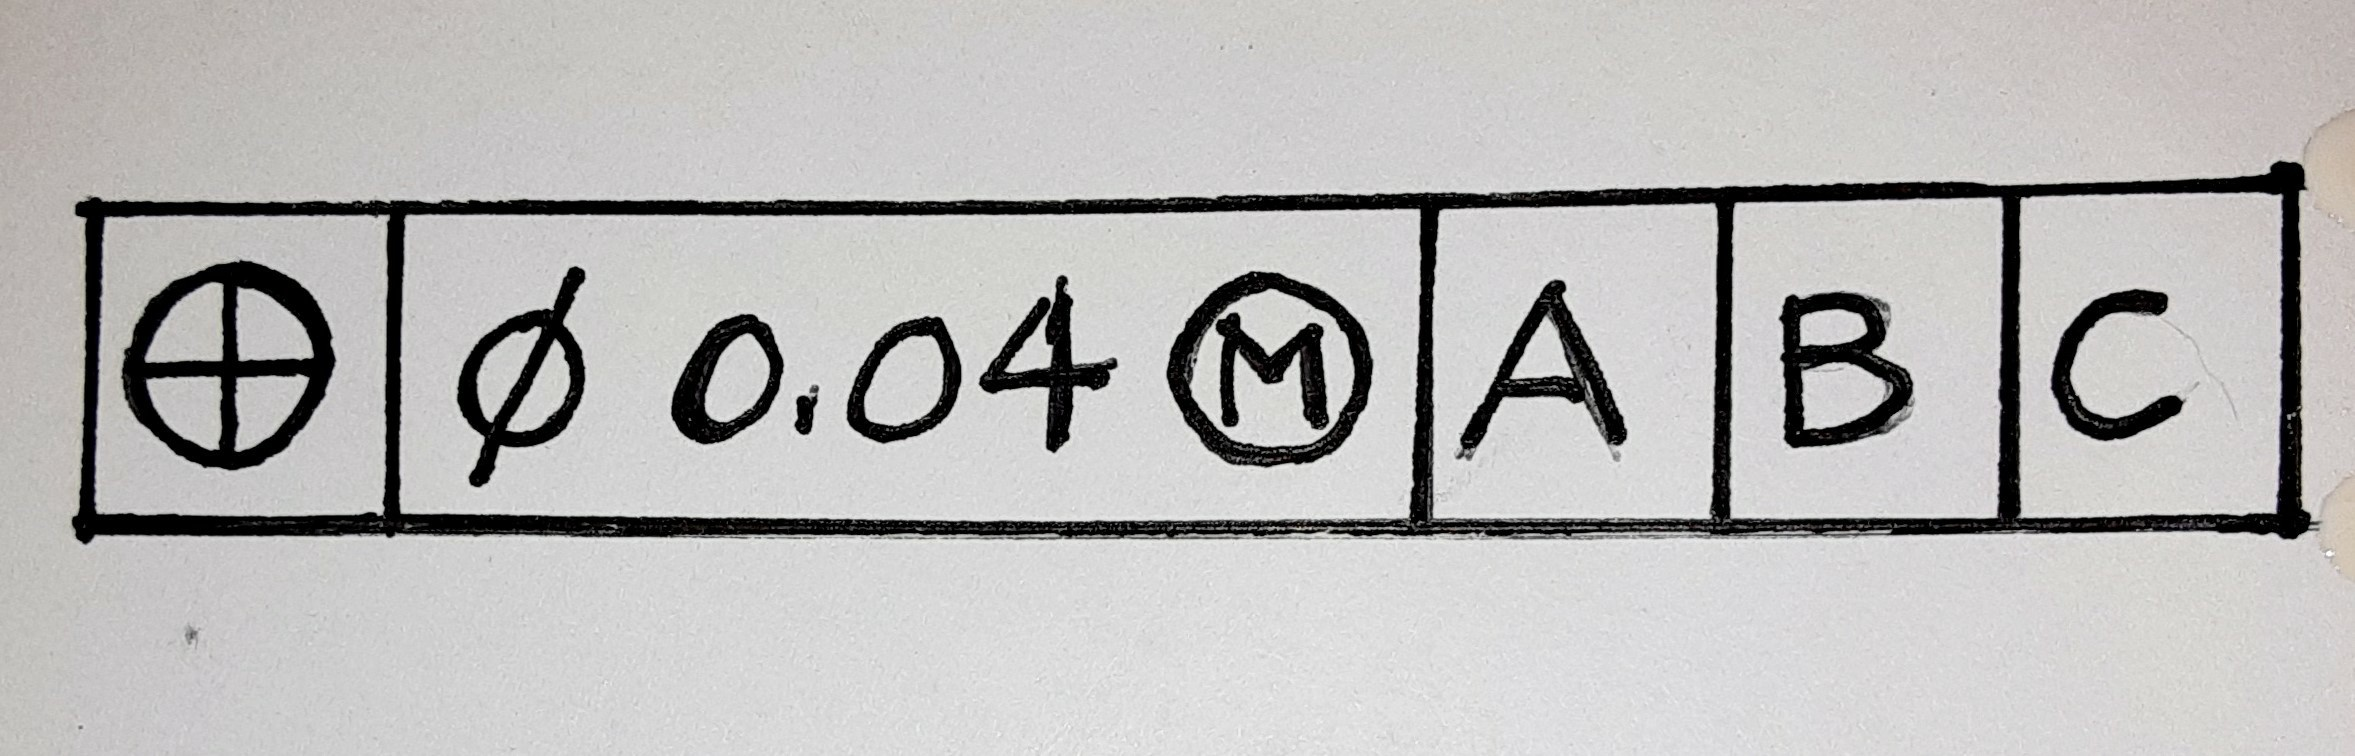 ⌖ ⌀ 0.04 Ⓜ A B C